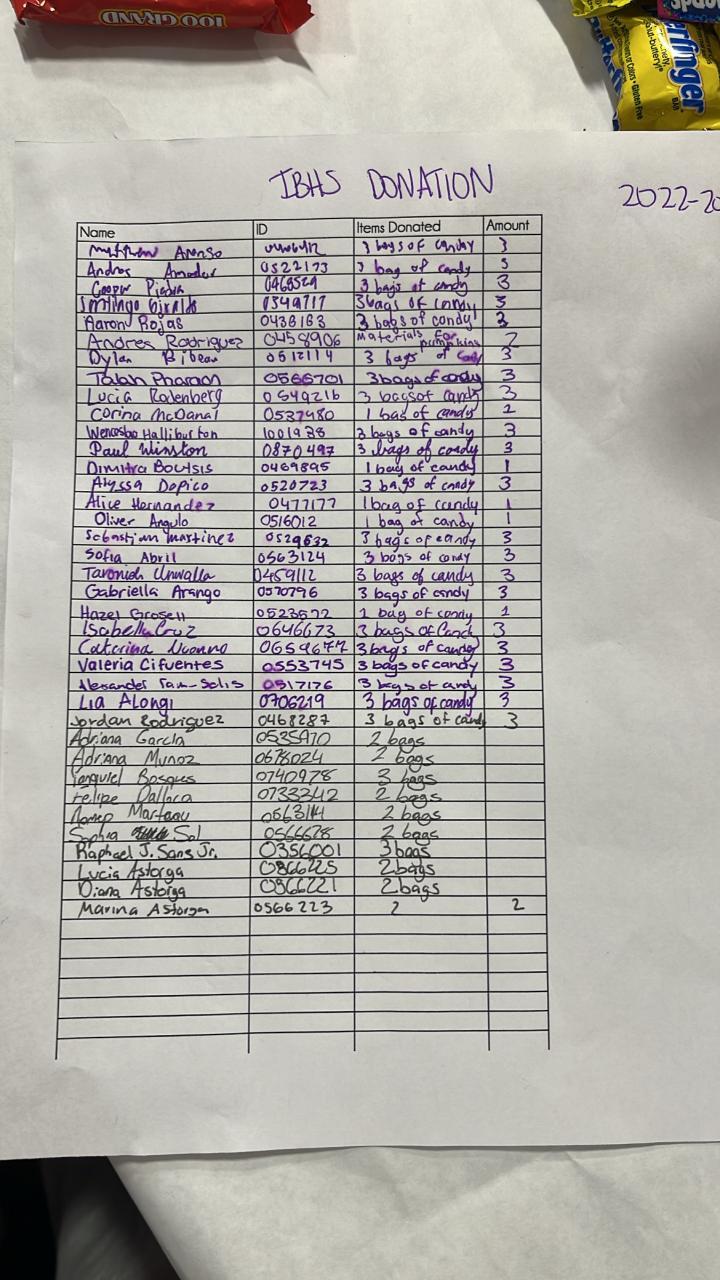 100 GRAND
erfinger
BAR
Gluten Free
IBHS DONATION
2022-20
Name ID Items Donated Amount
3 bags of candy 3
Andres Amador 0522173 3 bag of candy 3
Cooper 0468529 3 bags of candy 3
Santiago Giraldo 0349717 3 bags of candy 3
Aaron Rojas 0436163 3 bags of candy 3
Andres Rodriguez 0458906 Materials for pumpkins 2
Dylan Ribeau 0512114 3 bags of candy 3
Talah Pharaon 0566701 3 bags of candy 3
Lucia Rodenberg 0549216 3 bags of candy 3
Corina McDanal 0537480 1 bag of candy 1
Wenceslao Halliburton 1001938 3 bags of candy 3
Paul Winston 0870497 3 bags of candy 3
Dimitra Boutsis 0469895 1 bag of candy 1
Alyssa Dopico 0520723 3 bags of candy 3
Alice Hernandez 0477177 1 bag of candy 1
Oliver Angulo 0516012 1 bag of candy 1
Sebastian martinez 0529632 3 bags of candy 3
Sofia Abril 0563124 3 bags of candy 3
Taronish Unwalla 0459112 3 bags of candy 3
Gabriella Arango 0570796 3 bags of candy 3
Hazel Grosell 0523572 1 bag of candy 1
Isabella Cruz 0646673 3 bags of Candy 3
Caterina 0659677 3 bags of candy 3
Valeria Cifuentes 0553745 3 bags of candy 3
Alexander Tam-Solis 0517176 3 bags of candy 3
Lia Alongi 0706219 3 bags of candy 3
Jordan Rodriguez 0468287 3 bags of candy 3
Adriana Garcia 0535970 2 bags
Adriana Munoz 0678024 2 bags
Yanquiel Bosques 0740978 3 bags
Felipe 0733342 2 bags
2 bags
Sophia Sol 0566678 2 bags
Raphael J. Sans Jr. 0356001 3 bags
Lucia Astorga 0866225 2 bags
Diana Astorga 0866221 2 bags
Marina Astorga 0566223 2 2